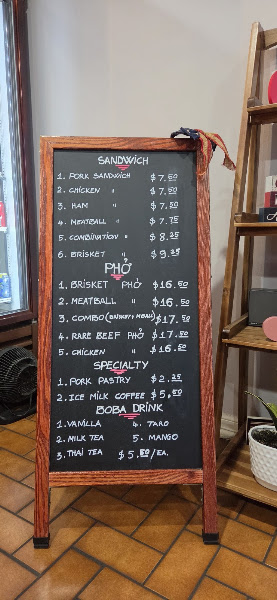 SANDWICH
1. PORK SANDWICH $7.50
2. CHICKEN " $7.50
3. HAM " $7.50
4. MEATBALL " $7.75
5. COMBINATION " $8.25
6. BRISKET " $9.25
PHỞ
1. BRISKET PHỞ $16.50
2. MEATBALL " $16.50
3. COMBO (BRISKET+MEATBALL) $17.50
4. RARE BEEF PHỞ $17.50
5. CHICKEN " $16.50
SPECIALTY
1. PORK PASTRY $2.25
2. ICE MILK COFFEE $5.50
BOBA DRINK
1. VANILLA 4. TARO
2. MILK TEA 5. MANGO
3. THAI TEA $5.50/EA.